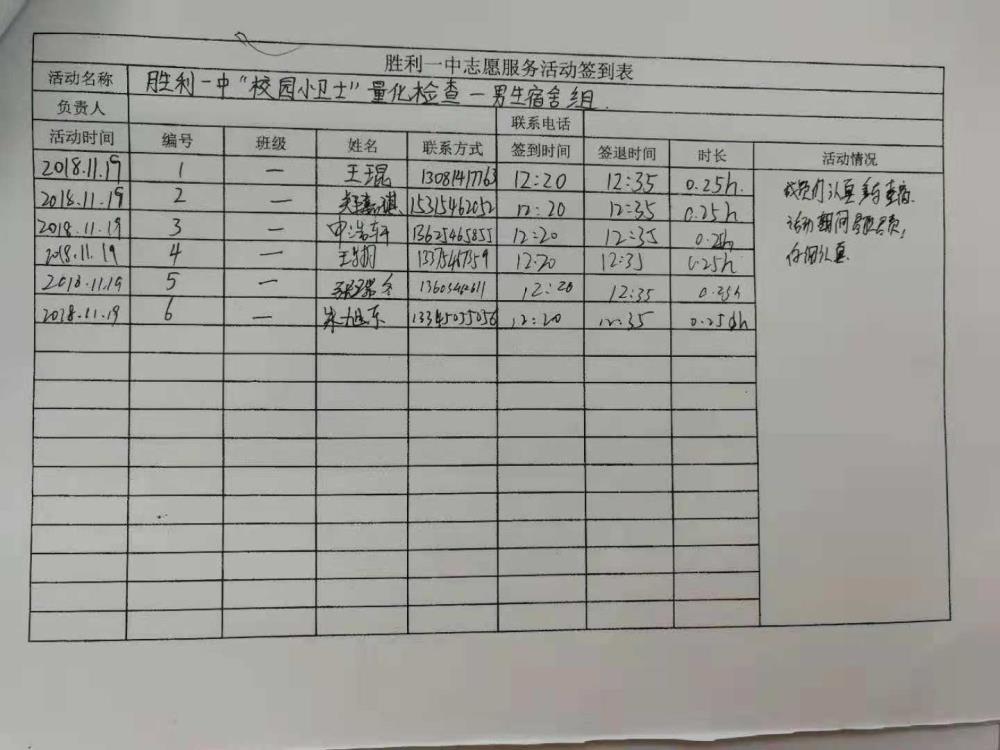 胜利一中志愿服务活动签到表
活动名称 胜利一中“校园小卫士”量化检查一男生宿舍组.
负责人 联系电话
活动时间 编号 班级 姓名 联系方式 签到时间 签退时间 时长 活动情况
2018.11.19 1 一 王琨 13081417763 12:20 12:35 0.25h.
2018.11.19 2 一 15315462052 12:20 12:35 0.25h
2018.11.19 3 一 申浩轩 13625465855 12:20 12:35 0.25h
2018.11.19 4 一 12:20 12:35 0.25h
2018.11.19 5 一 12:20 12:35 0.25h
2018.11.19 6 一 朱旭东 13345055056 12:20 12:35
认真
活动期间
仔细认真